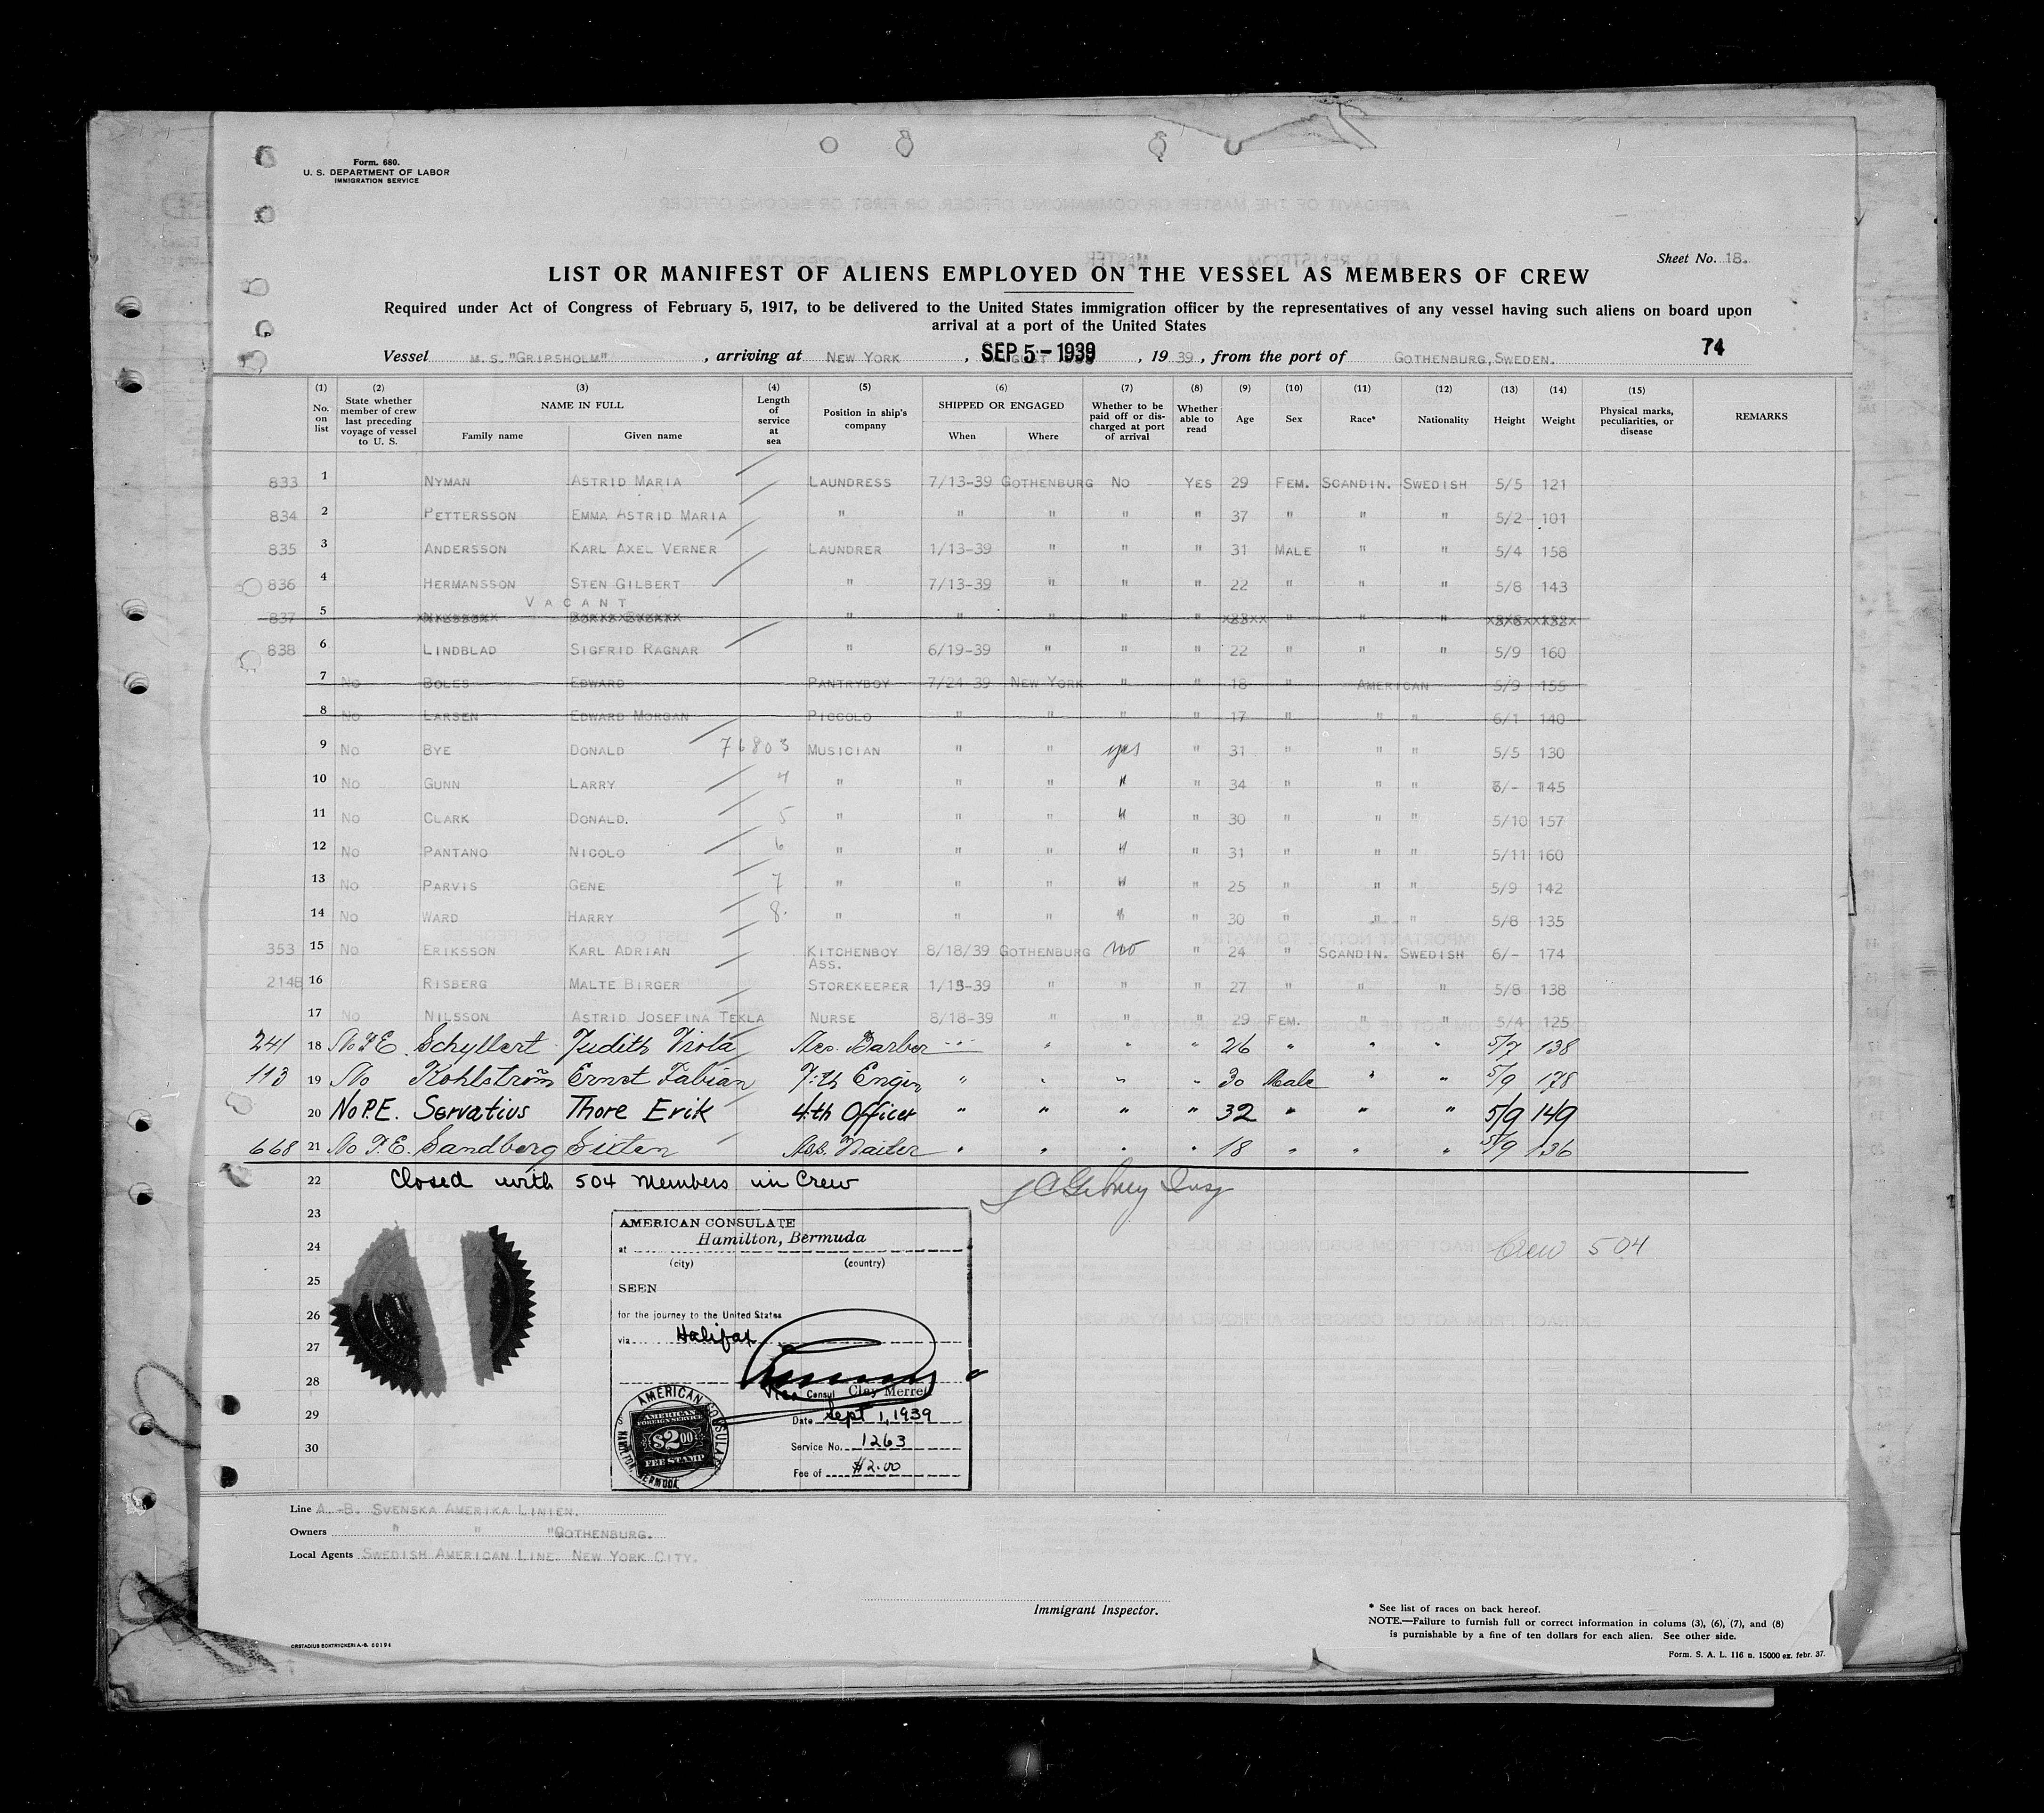 Form. 680.
U. S. DEPARTMENT OF LABOR
IMMIGRATION SERVICE
Sheet No. 18.
LIST OR MANIFEST OF ALIENS EMPLOYED ON THE VESSEL AS MEMBERS OF CREW
Required under Act of Congress of February 5, 1917, to be delivered to the United States immigration officer by the representatives of any vessel having such aliens on board upon
arrival at a port of the United States
Vessel M.S. "GRIPSHOLM", arriving at NEW YORK, SEP 5 - 1939, 19 39, from the port of GOTHENBURG, SWEDEN. 74
(1) No. on list
(2) State whether member of crew last preceding voyage of vessel to U. S.
(3) NAME IN FULL Family name Given name
(4) Length of service at sea
(5) Position in ship's company
(6) SHIPPED OR ENGAGED When Where
(7) Whether to be paid off or discharged at port of arrival
(8) Whether able to read
(9) Age
(10) Sex
(11) Race*
(12) Nationality
(13) Height
(14) Weight
(15) Physical marks, peculiarities, or disease
REMARKS
833 1 NYMAN ASTRID MARIA LAUNDRESS 7/13-39 GOTHENBURG NO YES 29 FEM. SCANDIN. SWEDISH 5/5 121
834 2 PETTERSSON EMMA ASTRID MARIA " " " " " 37 " " " 5/2 101
835 3 ANDERSSON KARL AXEL VERNER LAUNDRER 1/13-39 " " " 31 MALE " " 5/4 158
836 4 HERMANSSON STEN GILBERT " 7/13-39 " " " 22 " " " 5/8 143
VACANT
837 5 " " " " " " " "
838 6 LINDBLAD SIGFRID RAGNAR " 6/19-39 " " " 22 " " " 5/9 160
7 NO BOLES EDWARD PANTRYBOY 7/24-39 NEW YORK " " 18 " AMERICAN 5/9 155
8 NO LARSEN EDWARD MORGAN PICCOLO " " " " 17 " " " 6/1 140
9 NO BYE DONALD 76803 MUSICIAN " " yes " 31 " " " 5/5 130
10 NO GUNN LARRY 4 " " " " " 34 " " " 6/- 145
11 NO CLARK DONALD. 5 " " " " " 30 " " " 5/10 157
12 NO PANTANO NICOLO 6 " " " " " 31 " " " 5/11 160
13 NO PARVIS GENE 7 " " " " " 25 " " " 5/9 142
14 NO WARD HARRY 8. " " " " " 30 " " " 5/8 135
353 15 NO ERIKSSON KARL ADRIAN KITCHENBOY 8/18/39 GOTHENBURG no " 24 " SCANDIN. SWEDISH 6/- 174
2148 16 RISBERG MALTE BIRGER ASS. STOREKEEPER 1/13-39 " " " 27 " " " 5/8 138
17 NO NILSSON ASTRID JOSEFINA TEKLA NURSE 8/18-39 " " " 29 FEM. " " 5/4 125
241 18 No P.E. Schyllert Judith Viola Ass. Barber " " " " 26 " " " 5/7 138
113 19 No Kohlström Ernst Fabian 7:th Engin " " " " 30 Male " " 5/9 178
20 No P.E. Servatius Thore Erik 4th Officer " " " " 32 " " " 5/9 149
668 21 No P.E. Sandberg Sixten Ass. Waiter " " " " 18 " " " 5/9 136
22 Closed with 504 members in Crew
23
24 Crew 504
25
26
27
28
29
30
AMERICAN CONSULATE
at Hamilton, Bermuda
(city) (country)
SEEN
for the journey to the United States
via Halifax
Vice Consul Clay Merrell
Date Sept 1, 1939
Service No. 1263
Fee of $2.00
AMERICAN CONSULATE
HAMILTON, BERMUDA
AMERICAN
FOREIGN SERVICE
$2.00
FEE STAMP
Line A.-B. SVENSKA AMERIKA LINIEN.
Owners " " " GOTHENBURG.
Local Agents SWEDISH AMERICAN LINE. NEW YORK CITY.
Immigrant Inspector.
* See list of races on back hereof.
NOTE.—Failure to furnish full or correct information in colums (3), (6), (7), and (8)
is purnishable by a fine of ten dollars for each alien. See other side.
ORSTADIUS BOKTRYCKERI A.-B. 60194
Form. S. A. L. 116 n. 15000 ex. febr. 37.